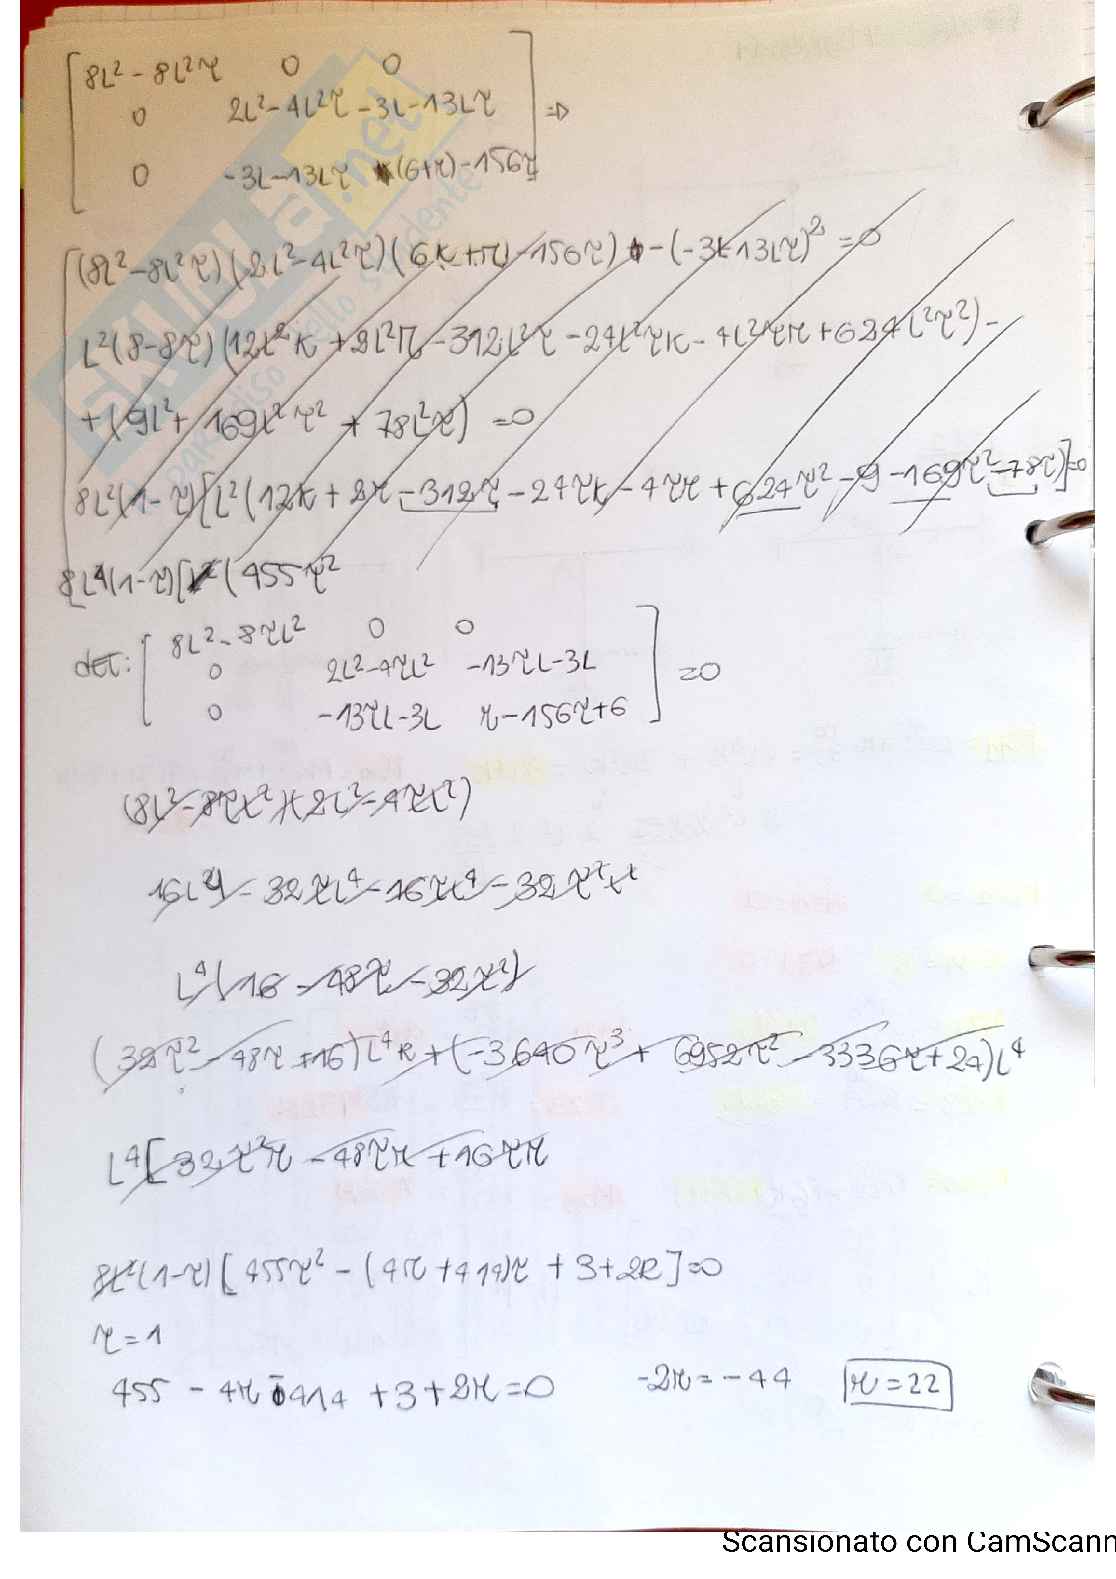 8L² - 8L²τ 0 0
0 2L² - 4L²τ -3L - 13Lτ ⇒
0 -3L - 13Lτ (6+r) - 156τ
(8L² - 8L²τ)(2L² - 4L²τ)(6K + r) - 156τ) - (-3L 13Lτ)² = 0
L²(8 - 8τ)(12L²K + 2L²r - 312L²τ - 24L²τK - 4L²τr + 624L²τ²) -
+ (9L² + 169L²τ² + 78L²τ) = 0
8L²(1-τ)[L²(12K + 2r - 312τ - 24τK - 4τr + 624τ² - 9 - 169τ² - 78τ)] = 0
8L⁴(1-τ)[(455τ²
det: 8L² - 8τL² 0 0
0 2L² - 4τL² -13τL - 3L = 0
0 -13τL - 3L r - 156τ + 6
(8L² - 8τL²)(2L² - 4τL²)
16L⁴ - 32τL⁴ - 16τL⁴ - 32τ²L⁴
L⁴(16 - 48τ - 32τ²)
(32τ² - 48τ + 16)L⁴r + (-3640τ³ + 6952τ² - 3336τ + 24)L⁴
L⁴[32τ²r - 48τr + 16τr
8L²(1-τ)[455τ² - (4r + 414)τ + 3 + 2r] = 0
τ = 1
455 - 4r - 414 + 3 + 2r = 0 -2r = -44 r = 22
SKUOLA.net
Scansionato con CamScann